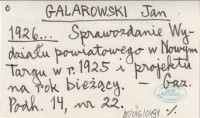 GALAROWSKI Jan
1926... Sprawozdanie Wy-
działu powiatowego w Nowym
Targu w r. 1925 i projektu
na rok bieżący. - Gaz.
Podh. 14, nr 22.